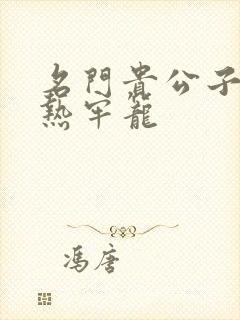 名門貴公子
熱牢籠
馮唐